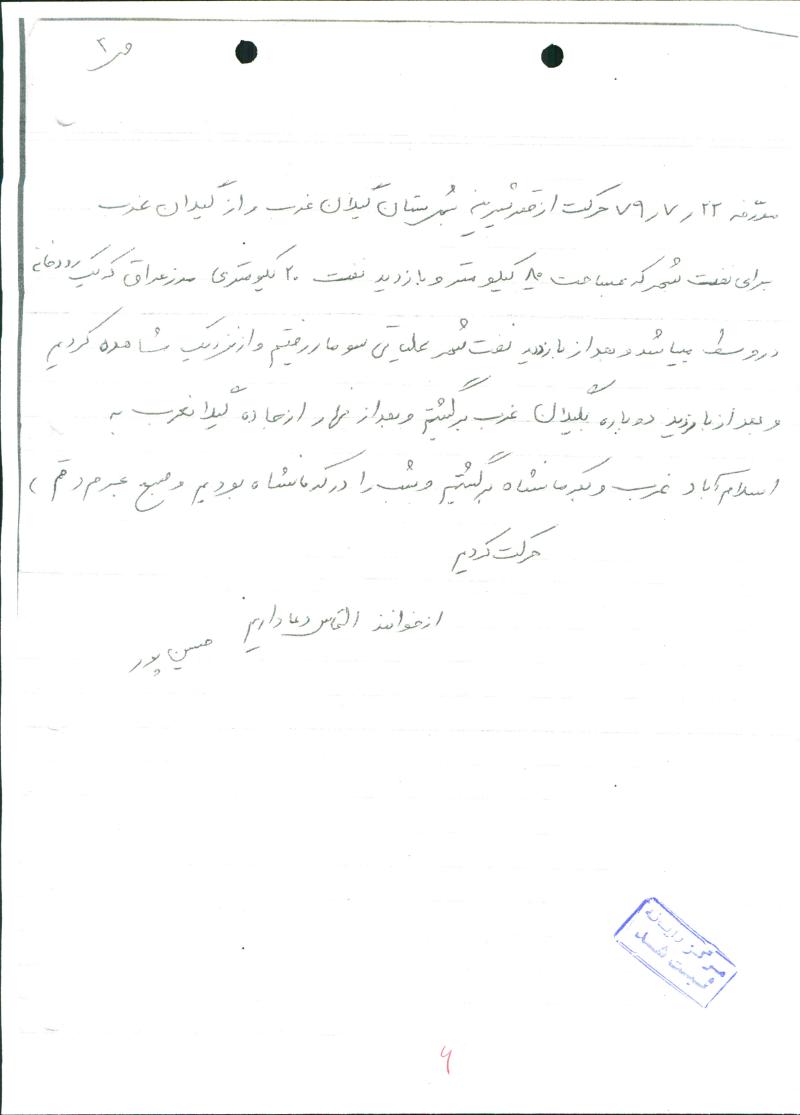 ص ۲
مورخه ۲۲ / ۷ / ۷۹ حرکت از قصرشیرین به شهرستان گیلان غرب و از گیلان غرب
برای نفت شهر که مساحت ۸۰ کیلومتر و بازدید نفت ۲۰ کیلومتری مرز عراق که یک رودخانه
در وسط میباشد و بعد از بازدید نفت شهر عملیاتی سومار رفتیم و از نزدیک مشاهده کردیم
و بعد از بازدید دوباره بگیلان غرب برگشتیم و بعد از نهار از جاده گیلانغرب به
اسلام آباد غرب و بکرمانشاه برگشتیم و شب را در کرمانشاه بودیم و صبح
حرکت کردیم
از خوانند التماس دعا داریم
حسین پور
مرکز رایانه
ثبت شد
۶